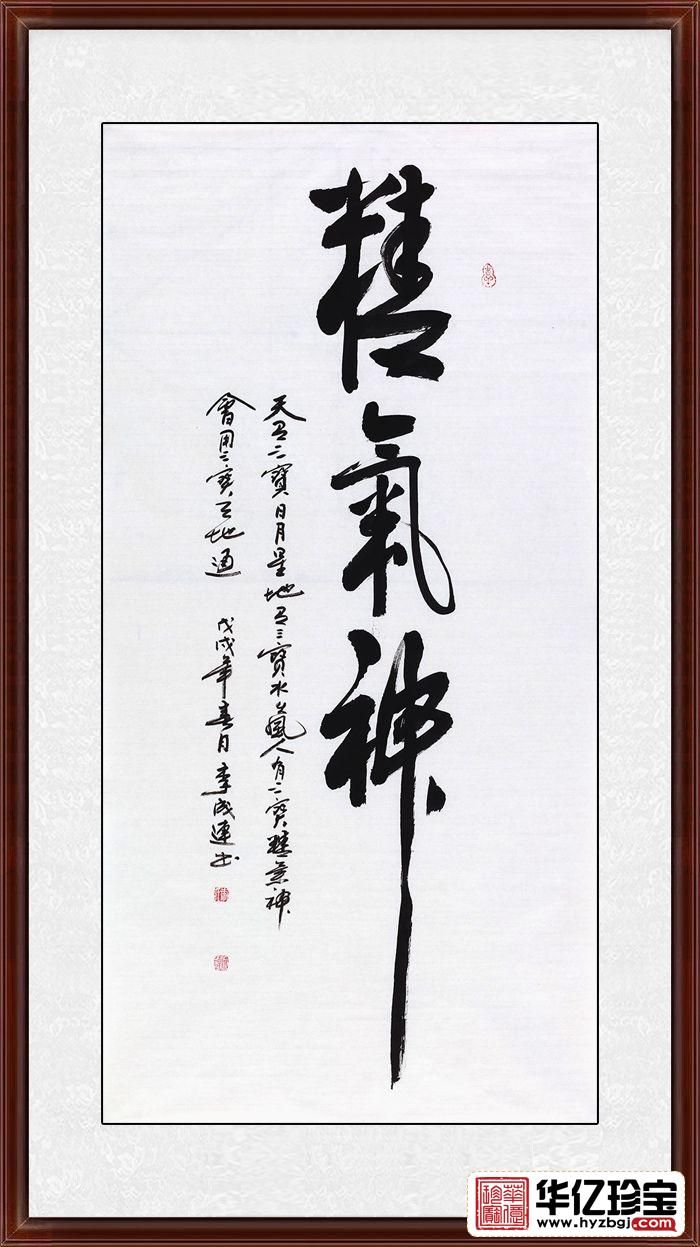 精氣神
天有三寶日月星地有三寶水火風人有三寶精氣神
會用三寶天地通
戊戌年春月李成連书
华亿珍宝
www.hyzbgj.com